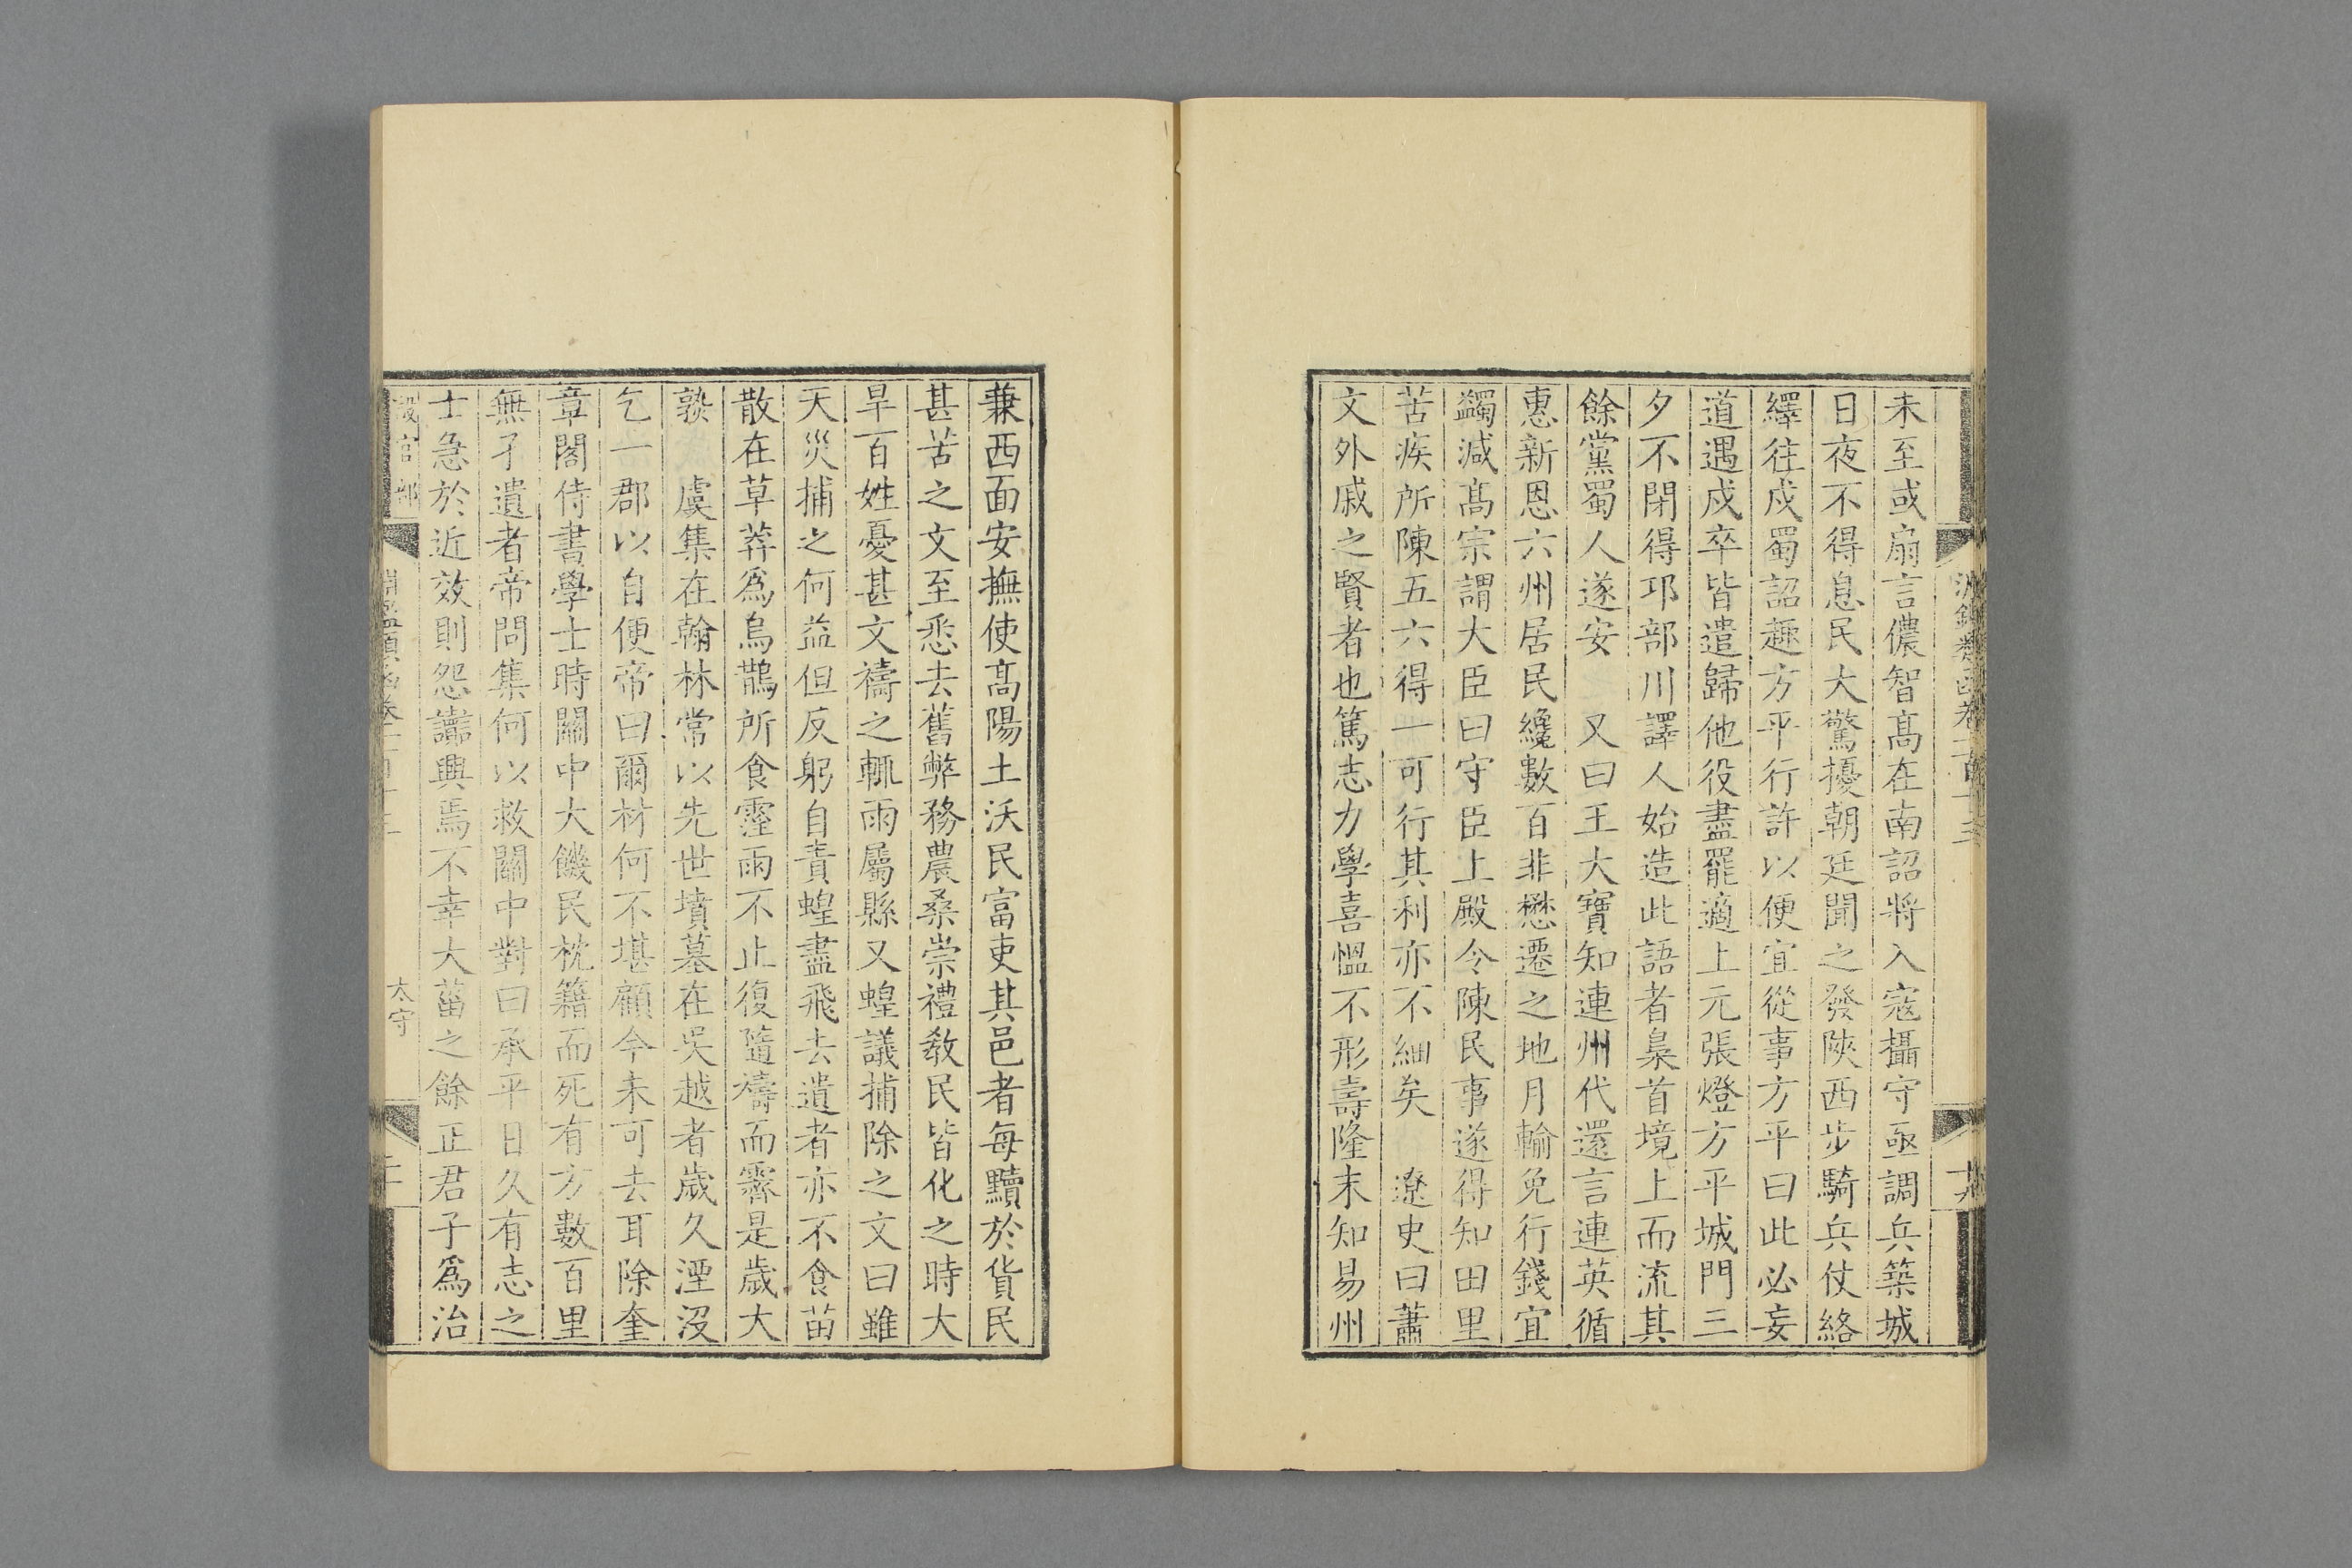 未至或扇言儂智髙在南詔將入寇攝守亟調兵築城
日夜不得息民大驚擾朝廷聞之發陝西步騎兵仗絡
繹往戍蜀詔趣方平行許以便宜從事方平曰此必妄
道遇戍卒皆遣歸他役盡罷適上元張燈方平城門三
夕不閉得邛部川譯人始造此語者梟首境上而流其
餘黨蜀人遂安　又曰王大寶知連州代還言連英循
惠新恩六州居民纔數百非懋遷之地月輸免行錢宜
蠲減髙宗謂大臣曰守臣上殿令陳民事遂得知田里
苦疾所陳五六得一可行其利亦不細矣　遼史曰蕭
文外戚之賢者也篤志力學喜慍不形壽隆末知易州
兼西面安撫使髙陽土沃民富吏其邑者每黷於貨民
甚苦之文至悉去舊弊務農桑崇禮教民皆化之時大
旱百姓憂甚文禱之輒雨屬縣又蝗議捕除之文曰雖
天災捕之何益但反躬自責蝗盡飛去遺者亦不食苗
散在草莽爲烏鵲所食霪雨不止復隨禱而霽是歲大
孰　虞集在翰林常以先世墳墓在吳越者歲久湮沒
乞一郡以自便帝曰爾材何不堪顧今未可去耳除奎
章閣侍書學士時關中大饑民枕籍而死有方數百里
無孑遺者帝問集何以救關中對曰承平日久有志之
士急於近效則怨讟興焉不幸大菑之餘正君子爲治
太守